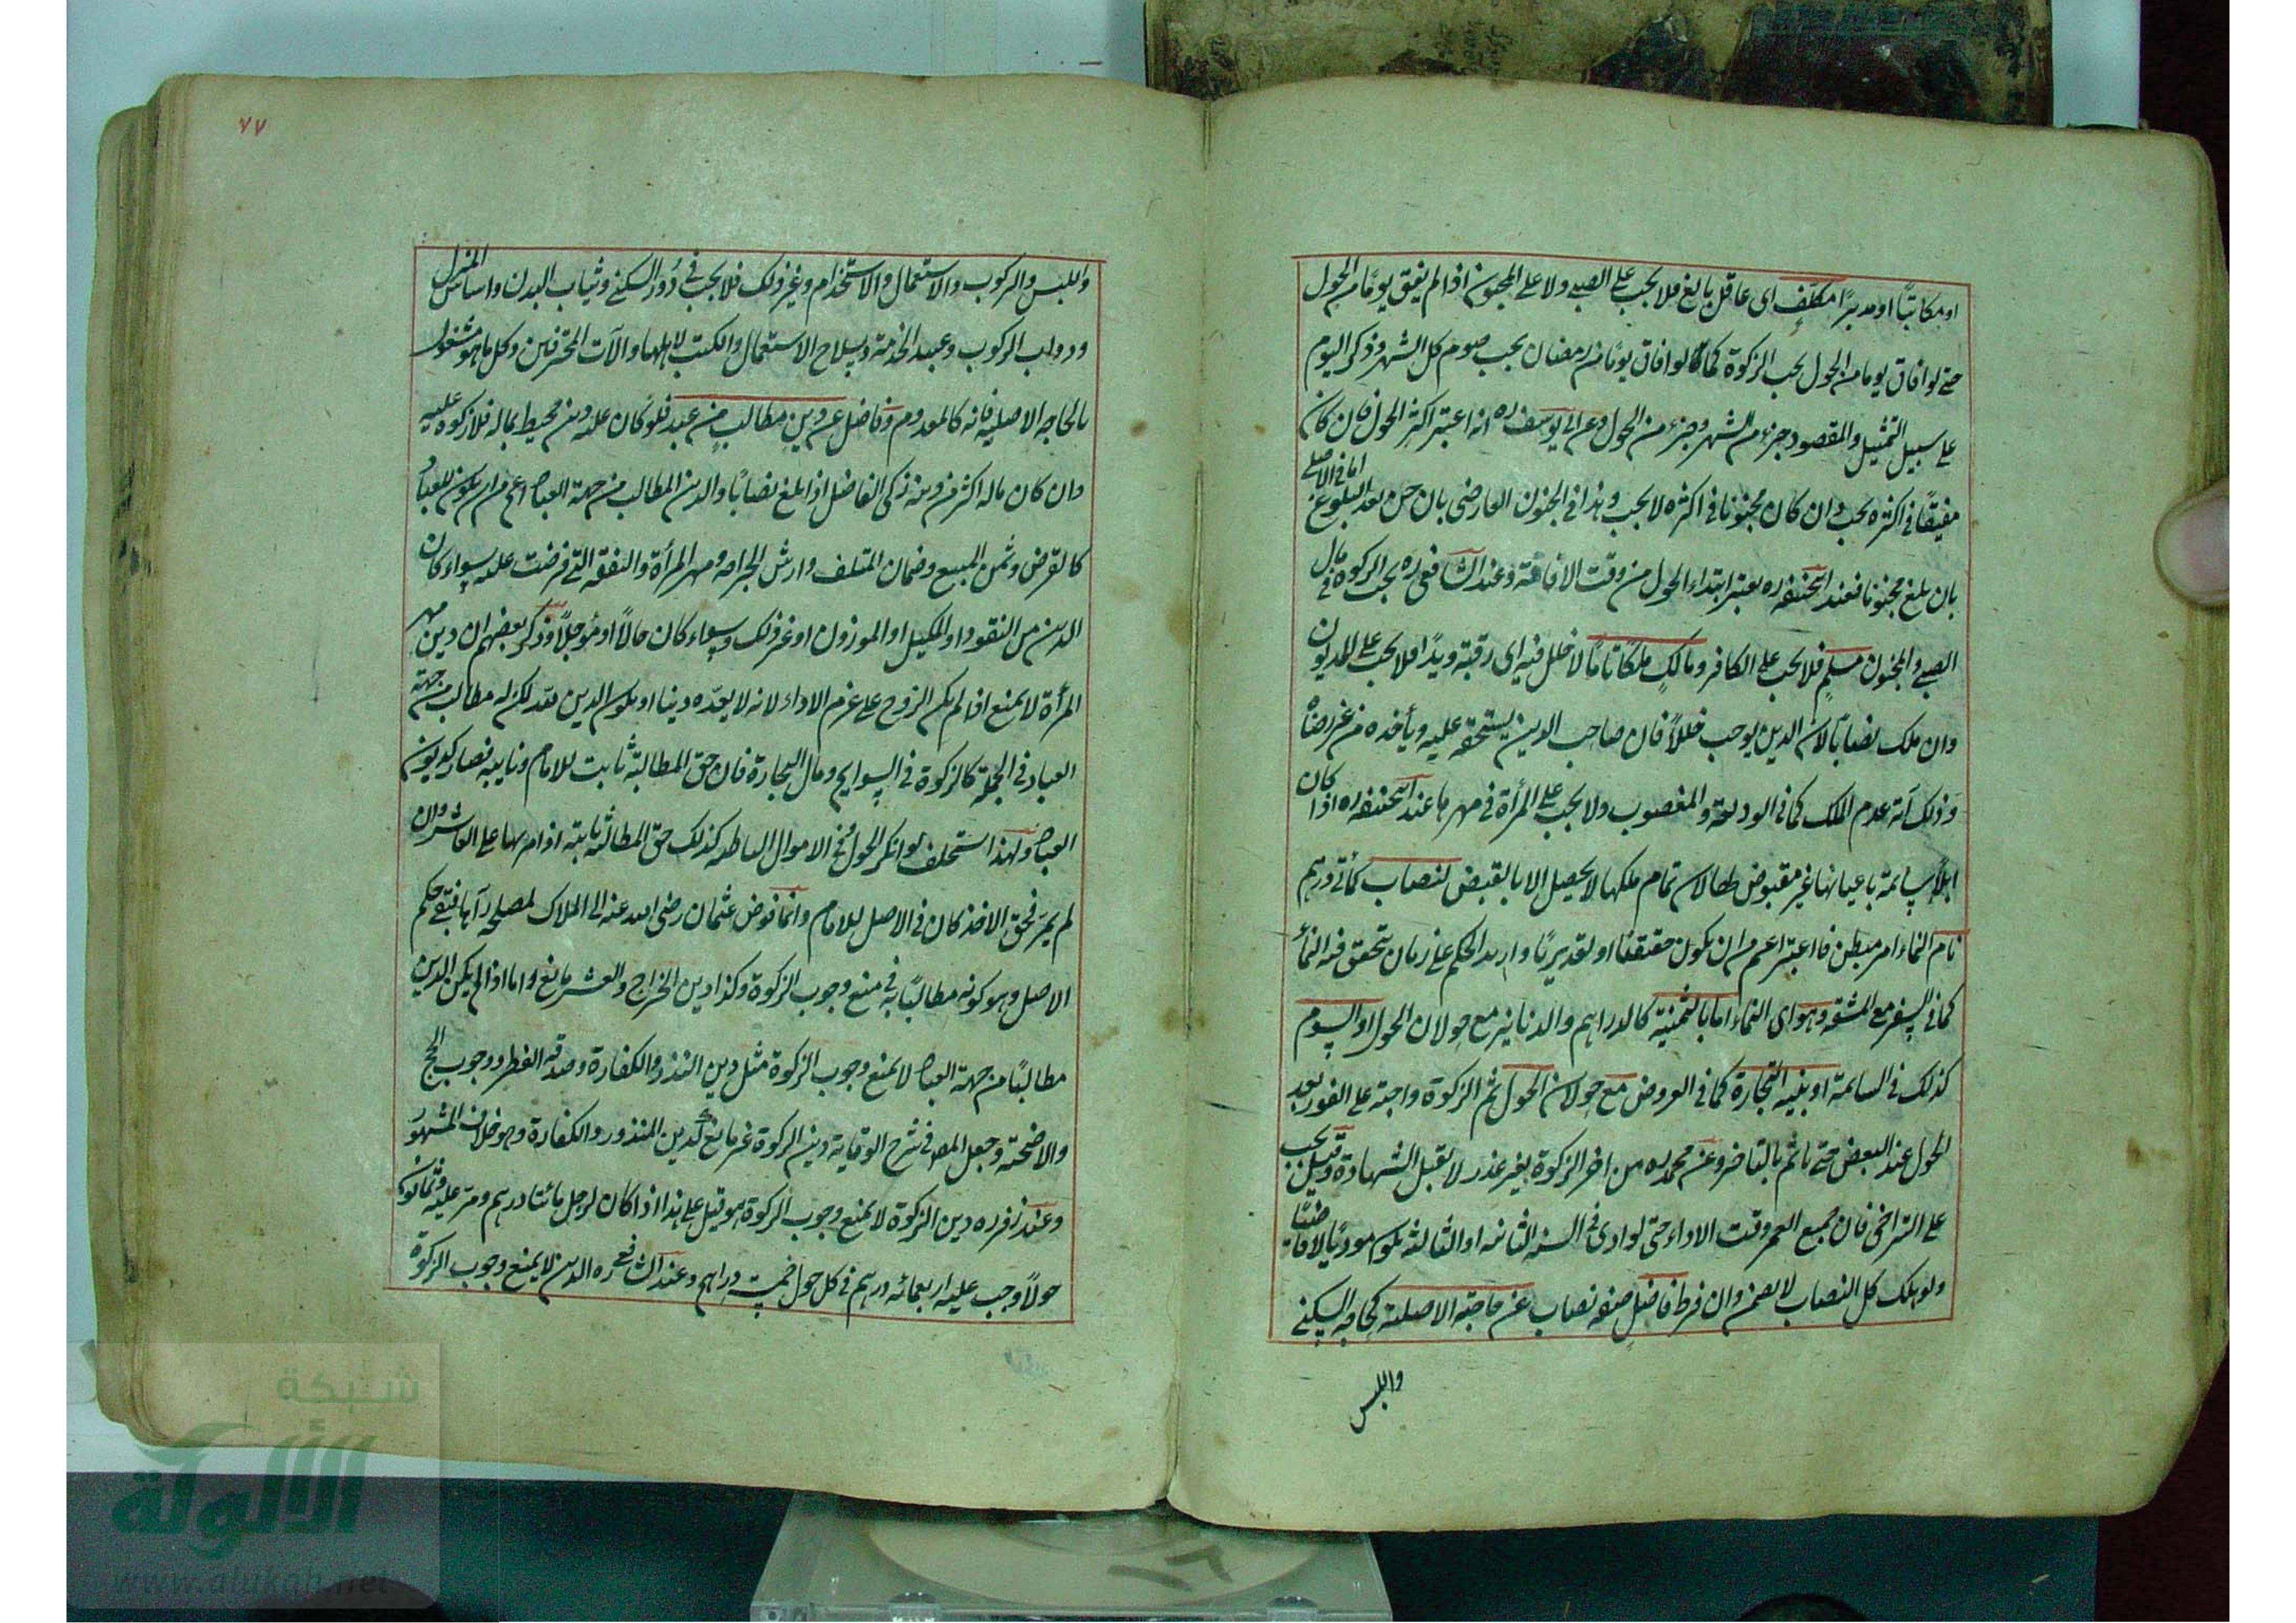 او مكاتبًا او مدبرًا مكلّف اى عاقل بالغ فلا يجب على الصبى ولا على المجنون اذا لم يفق يومًا من الحول
حتى لو افاق يوما من الحول يجب الزكوة كما لو افاق يومًا من رمضان يجب صوم كل الشهر وذكر اليوم
على سبيل التمثيل والمقصود جزء من الشهر وجزء من الحول وعن ابى يوسف ره انه اعتبر اكثر الحول فان كان
مفيقًا فى اكثره يجب وان كان مجنونا فى اكثره لا يجب وهذا فى الجنون العارضى بان جن بعد البلوغ اما فى الاصلى
بان بلغ مجنونا فعند ابيحنيفه ره يعتبر ابتداء الحول من وقت الافاقة وعند الشافعى ره يجب الزكوة فى مال
الصبى والمجنون مسلم فلا يجب على الكافر ومالك ملكًا تامًا لا خلل فيه اى رقبة ويدًا فلا يجب على المديون
وان ملك نصابًا لان الدين يوجب خللاً فان صاحب الدين يستحقه عليه ويأخذه من غير رضاه
وذلك آية عدم الملك كما فى الوديعة والمغصوب ولا يجب على المرأة فى مهرها عند ابيحنيفه ره اذا كان
ابلاً سائمة باعيانها غير مقبوض لها لان تمام ملكها لا يحصل الا بالقبض لنصاب كمأتى درهم
نام النماء امر مبطن فاعتبر اعم من ان يكون حقيقيًا او تقديريًا وادير الحكم على زمان يتحقق فيه النماء
كما فى السفر مع المشقه وهو اى النماء اما بالثمنية كالدراهم والدنانير مع حولان الحول او السوم
كذلك فى السائمة او بنيه التجارة كما فى العروض مع حولان الحول ثم الزكوة واجبة على الفور بعد
الحول عند البعض حتى ياثم بالتاخير وعن محمد ره من اخر الزكوة بغير عذر لا تقبل الشهادة وقيل يجب
على التراخى فان جميع العمر وقت الاداء حتى لو ادى فى السنه الثانيه او الثالثه يكون مؤديًا لا قاضيًا
ولو هلك كل النصاب لا يضمن وان فرط فاضل صفه نصاب عن حاجته الاصلية كحاجه السكنى
واللبس
٧٧
واللبس والركوب والاستعمال والاستخدام وغير ذلك فلا يجب فى دُور السكنى وثياب البدن واساس المنزل
ودواب الركوب وعبيد الخدمة وسلاح الاستعمال والكتب لاهلها والآت المحترفين وكل ما هو مشغول
بالحاجه الاصلية فانه كالمعدوم وفاضل عن دين مطالب من عبد فلو كان عليه دين محيط بماله فلا زكوة عليه
وان كان ماله اكثر من دينه زكى الفاضل اذا بلغ نصابًا والدين المطالب من جهة العباد اعم من ان يكون للعباد
كالقرض وثمن المبيع وضمان المتلف وارش الجراحه ومهر المرأة والنفقه التى فرضت عليه سواء كان
الدين من النقود او المكيل او الموزون او غير ذلك وسواء كان حالاً او مؤجلاً وذكر بعضهم ان دين مهر
المرأة لا يمنع اذا لم يكن الزوج على عزم الاداء لانه لا يعدّه دينا او يكون الدين لله لكن له مطالب من جهة
العباد فى الجملة كالزكوة فى السوايم ومال التجارة فان حق المطالبة ثابت للامام ونايبه فصار كديون
العباد ولهذا استحلف لو انكر الحول فى الاموال الباطنه كذلك حق المطالبة ثابته اذا مر بها على العاشر وان
لم يمر فحق الاخذ كان فى الاصل للامام وانما فوض عثمان رضى الله عنه الى الملاك لمصلحه رآها فبقى حكم
الاصل وهو كونه مطالبًا به فى منع وجوب الزكوة وكذا دين الخراج والعشر مانع واما اذا لم يكن الدين
مطالبًا من جهة العباد لا يمنع وجوب الزكوة مثل دين النذر والكفارة وصدقه الفطر ووجوب الحج
والاضحية وجعل المص فى شرح الوقاية دين الزكوة غير مانع كدين المنذور والكفارة وهو خلاف المشهور
وعند زفر ره دين الزكوة لا يمنع وجوب الزكوة هو قيل على هذا اذا كان لرجل مائتا درهم ومر عليه ثمانون
حولاً وجب عليه اربعمائه درهم فى كل حول خمسة دراهم وعند الشافعى ره الدين لا يمنع وجوب الزكوة
شبكة
الألوكة
www.alukah.net